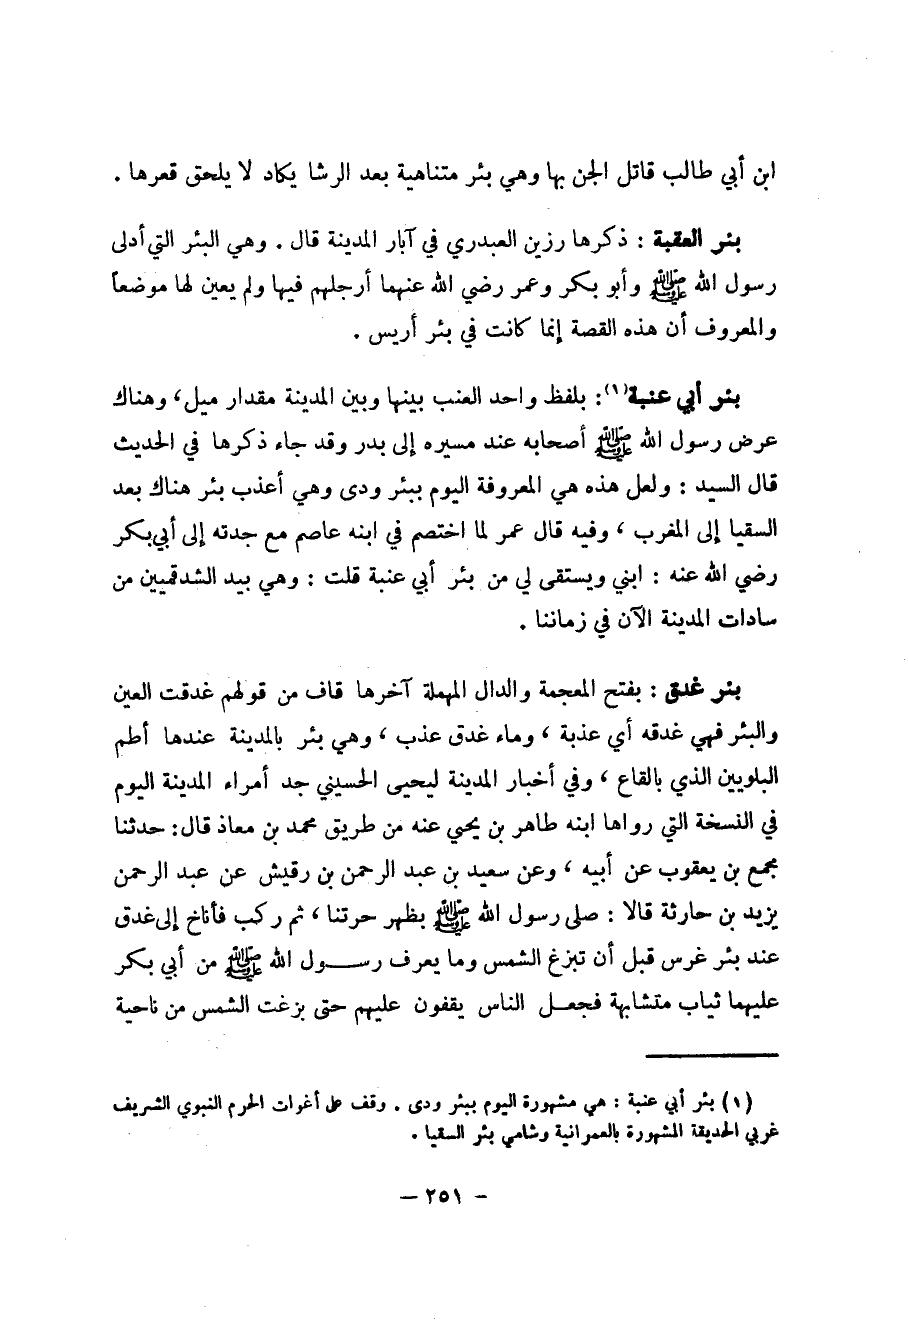 ابن أبي طالب قاتل الجن بها وهي بئر متناهية بعد الرشا يكاد لا يلحق قعرها .
بئر العقبة : ذكرها رزين العبدري في آبار المدينة قال . وهي البئر التي أدلى
رسول الله ﷺ وأبو بكر وعمر رضي الله عنهما أرجلهم فيها ولم يعين لها موضعاً
والمعروف أن هذه القصة إنما كانت في بئر أريس .
بئر أبي عنبة(١): بلفظ واحد العنب بينها وبين المدينة مقدار ميل، وهناك
عرض رسول الله ﷺ أصحابه عند مسيره إلى بدر وقد جاء ذكرها في الحديث
قال السيد : ولعل هذه هي المعروفة اليوم ببئر ودى وهي أعذب بئر هناك بعد
السقيا إلى المغرب ، وفيه قال عمر لما اختصم في ابنه عاصم مع جدته إلى أبي بكر
رضي الله عنه : ابني ويستقى لي من بئر أبي عنبة قلت : وهي بيد الشدقميين من
سادات المدينة الآن في زماننا .
بئر غدق : بفتح المعجمة والدال المهملة آخرها قاف من قولهم غدقت العين
والبئر فهي غدقه أي عذبة ، وماء غدق عذب ، وهي بئر بالمدينة عندها أطم
البلويين الذي بالقاع ، وفي أخبار المدينة ليحيى الحسيني جد أمراء المدينة اليوم
في النسخة التي رواها ابنه طاهر بن يحيى عنه من طريق محمد بن معاذ قال: حدثنا
مجمع بن يعقوب عن أبيه ، وعن سعيد بن عبد الرحمن بن رقيش عن عبد الرحمن
يزيد بن حارثة قالا : صلى رسول الله ﷺ بظهر حرتنا ، ثم ركب فأناخ إلى غدق
عند بئر غرس قبل أن تبزغ الشمس وما يعرف رسول الله ﷺ من أبي بكر
عليهما ثياب متشابهة فجعل الناس يقفون عليهم حتى بزغت الشمس من ناحية
(١) بئر أبي عنبة : هي مشهورة اليوم ببئر ودى . وقف على أغوات الحرم النبوي الشريف
غربي الحديقة المشهورة بالعمرانية وشامي بئر السقيا .
- ٢٥١ -